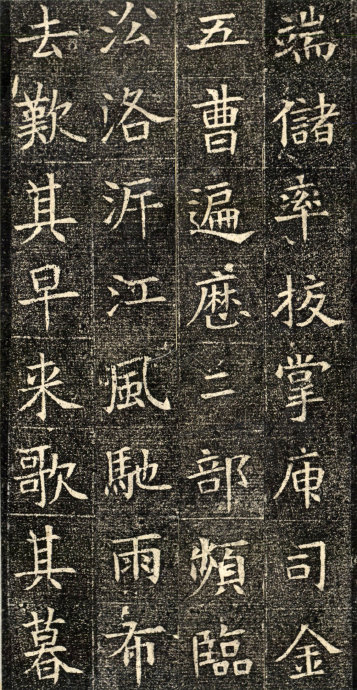 端儲率扳掌庾司金
五曹遍歷二部頻臨
㳂洛泝江風馳雨布
去歎其早来歌其暮